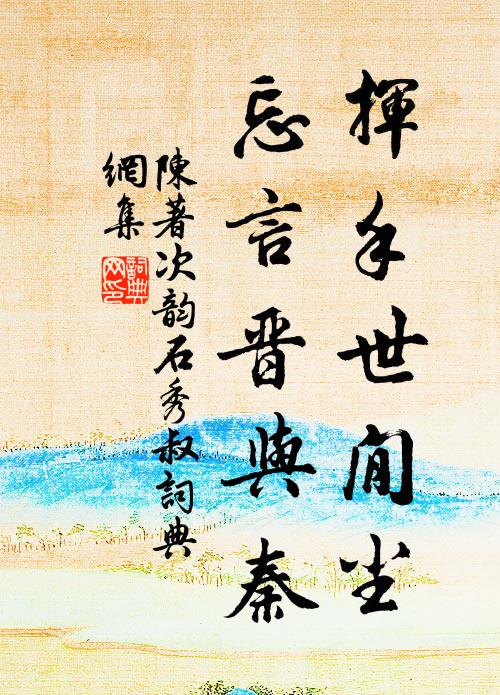 揮手世間尘
忘言晋與秦
陳著次韵石秀叔詞典
網集
詞典網印